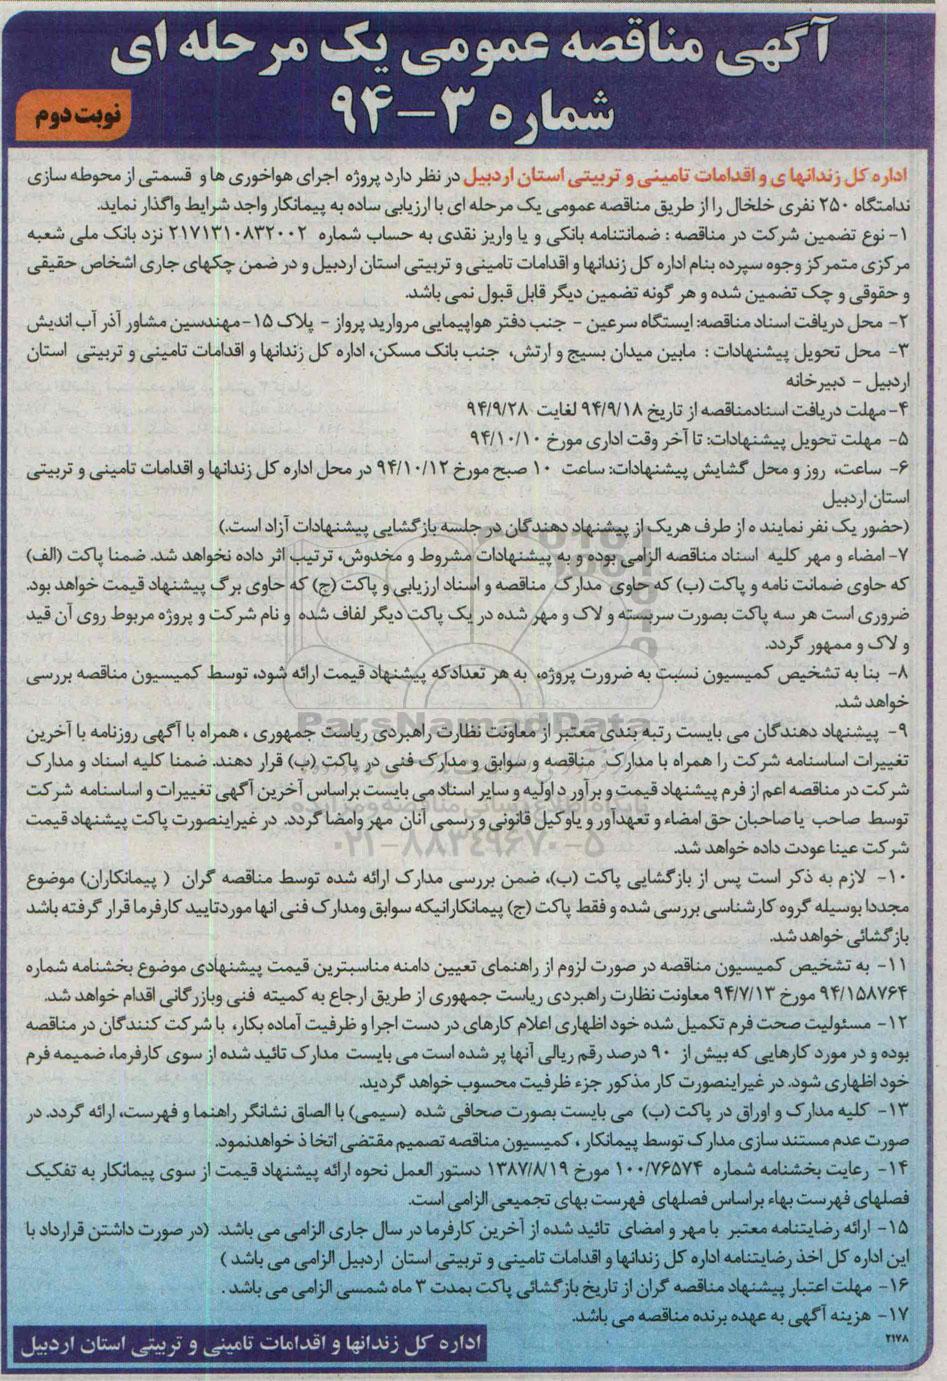 آگهی مناقصه عمومی یک مرحله ای
شماره ۳-۹۴
نوبت دوم
اداره کل زندانهای و اقدامات تامینی و تربیتی استان اردبیل در نظر دارد پروژه اجرای هواخوری ها و قسمتی از محوطه سازی
ندامتگاه ۲۵۰ نفری خلخال را از طریق مناقصه عمومی یک مرحله ای با ارزیابی ساده به پیمانکار واجد شرایط واگذار نماید.
۱- نوع تضمین شرکت در مناقصه : ضمانتنامه بانکی و یا واریز نقدی به حساب شماره ۲۱۷۱۳۱۰۸۳۲۰۰۲ نزد بانک ملی شعبه
مرکزی متمرکز وجوه سپرده بنام اداره کل زندانها و اقدامات تامینی و تربیتی استان اردبیل و در ضمن چکهای جاری اشخاص حقیقی
و حقوقی و چک تضمین شده و هر گونه تضمین دیگر قابل قبول نمی باشد.
۲- محل دریافت اسناد مناقصه: ایستگاه سرعین - جنب دفتر هواپیمایی مروارید پرواز - پلاک ۱۵-مهندسین مشاور آذر آب اندیش
۳- محل تحویل پیشنهادات : مابین میدان بسیج و ارتش، جنب بانک مسکن، اداره کل زندانها و اقدامات تامینی و تربیتی استان
اردبیل - دبیرخانه
۴-مهلت دریافت اسنادمناقصه از تاریخ ۹۴/۹/۱۸ لغایت ۹۴/۹/۲۸
۵- مهلت تحویل پیشنهادات: تا آخر وقت اداری مورخ ۹۴/۱۰/۱۰
۶- ساعت، روز و محل گشایش پیشنهادات: ساعت ۱۰ صبح مورخ ۹۴/۱۰/۱۲ در محل اداره کل زندانها و اقدامات تامینی و تربیتی
استان اردبیل
(حضور یک نفر نماینده از طرف هریک از پیشنهاد دهندگان در جلسه بازگشایی پیشنهادات آزاد است.)
۷- امضاء و مهر کلیه اسناد مناقصه الزامی بوده و به پیشنهادات مشروط و مخدوش، ترتیب اثر داده نخواهد شد. ضمنا پاکت (الف)
که حاوی ضمانت نامه و پاکت (ب) که حاوی مدارک مناقصه و اسناد ارزیابی و پاکت (ج) که حاوی برگ پیشنهاد قیمت خواهد بود.
ضروری است هر سه پاکت بصورت سربسته و لاک و مهر شده در یک پاکت دیگر لفاف شده و نام شرکت و پروژه مربوط روی آن قید
و لاک و ممهور گردد.
۸- بنا به تشخیص کمیسیون نسبت به ضرورت پروژه، به هر تعدادکه پیشنهاد قیمت ارائه شود، توسط کمیسیون مناقصه بررسی
خواهد شد.
ParsNamadData
۹- پیشنهاد دهندگان می بایست رتبه بندی معتبر از معاونت نظارت راهبردی ریاست جمهوری ، همراه با آگهی روزنامه با آخرین
تغییرات اساسنامه شرکت را همراه با مدارک مناقصه و سوابق و مدارک فنی در پاکت (ب) قرار دهند. ضمنا کلیه اسناد و مدارک
شرکت در مناقصه اعم از فرم پیشنهاد قیمت و برآورد اولیه و سایر اسناد می بایست براساس آخرین آگهی تغییرات و اساسنامه شرکت
پایگاه اطلاع رسانی مناقصه و مزایده
توسط صاحب یا صاحبان حق امضاء و تعهدآور و یاوکیل قانونی و رسمی آنان مهر وامضا گردد. در غیراینصورت پاکت پیشنهاد قیمت
۰۲۱-۸۸۳۴۹۶۷۰-۵
شرکت عینا عودت داده خواهد شد.
۱۰- لازم به ذکر است پس از بازگشایی پاکت (ب)، ضمن بررسی مدارک ارائه شده توسط مناقصه گران ( پیمانکاران) موضوع
مجددا بوسیله گروه کارشناسی بررسی شده و فقط پاکت (ج) پیمانکارانیکه سوابق ومدارک فنی انها موردتایید کارفرما قرار گرفته باشد
بازگشائی خواهد شد.
۱۱- به تشخیص کمیسیون مناقصه در صورت لزوم از راهنمای تعیین دامنه مناسبترین قیمت پیشنهادی موضوع بخشنامه شماره
۹۴/۱۵۸۷۶۴ مورخ ۹۴/۷/۱۳ معاونت نظارت راهبردی ریاست جمهوری از طریق ارجاع به کمیته فنی وبازرگانی اقدام خواهد شد.
۱۲- مسئولیت صحت فرم تکمیل شده خود اظهاری اعلام کارهای در دست اجرا و ظرفیت آماده بکار، با شرکت کنندگان در مناقصه
بوده و در مورد کارهایی که بیش از ۹۰ درصد رقم ریالی آنها پر شده است می بایست مدارک تائید شده از سوی کارفرما، ضمیمه فرم
خود اظهاری شود. در غیراینصورت کار مذکور جزء ظرفیت محسوب خواهد گردید.
۱۳- کلیه مدارک و اوراق در پاکت (ب) می بایست بصورت صحافی شده (سیمی) با الصاق نشانگر راهنما و فهرست، ارائه گردد. در
صورت عدم مستند سازی مدارک توسط پیمانکار ، کمیسیون مناقصه تصمیم مقتضی اتخاذ خواهدنمود.
۱۴- رعایت بخشنامه شماره ۱۰۰/۷۶۵۷۴ مورخ ۱۳۸۷/۸/۱۹ دستور العمل نحوه ارائه پیشنهاد قیمت از سوی پیمانکار به تفکیک
فصلهای فهرست بهاء براساس فصلهای فهرست بهای تجمیعی الزامی است.
۱۵- ارائه رضایتنامه معتبر با مهر و امضای تائید شده از آخرین کارفرما در سال جاری الزامی می باشد. (در صورت داشتن قرارداد با
این اداره کل اخذ رضایتنامه اداره کل زندانها و اقدامات تامینی و تربیتی استان اردبیل الزامی می باشد )
۱۶- مهلت اعتبار پیشنهاد مناقصه گران از تاریخ بازگشائی پاکت بمدت ۳ ماه شمسی الزامی می باشد .
۱۷- هزینه آگهی به عهده برنده مناقصه می باشد.
۲۱۷۸
اداره کل زندانها و اقدامات تامینی و تربیتی استان اردبیل